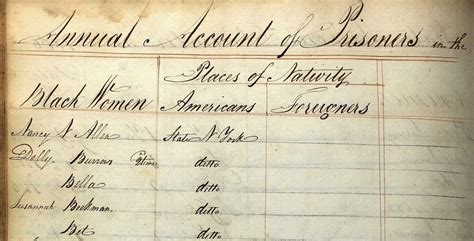 Annual Account of Prisoners in the
Places of Nativity
Black Women Americans Foreigners
Nancy N Allen State N York
Dolly Burrows ditto
Bella ditto
Susannah Beekman ditto
Bet ditto